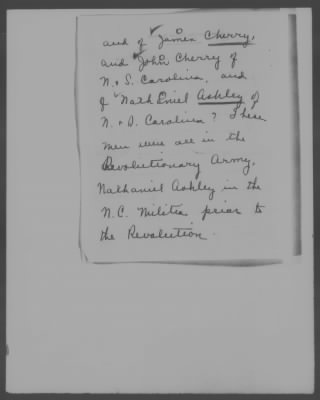 and of James Cherry,
and John Cherry of
N. & S. Carolina, and
of Nathaniel Ashley of
N. & S. Carolina? These
men were all in the
Revolutionary Army,
Nathaniel Ashley in the
N.C. Militia prior to
the Revolution.